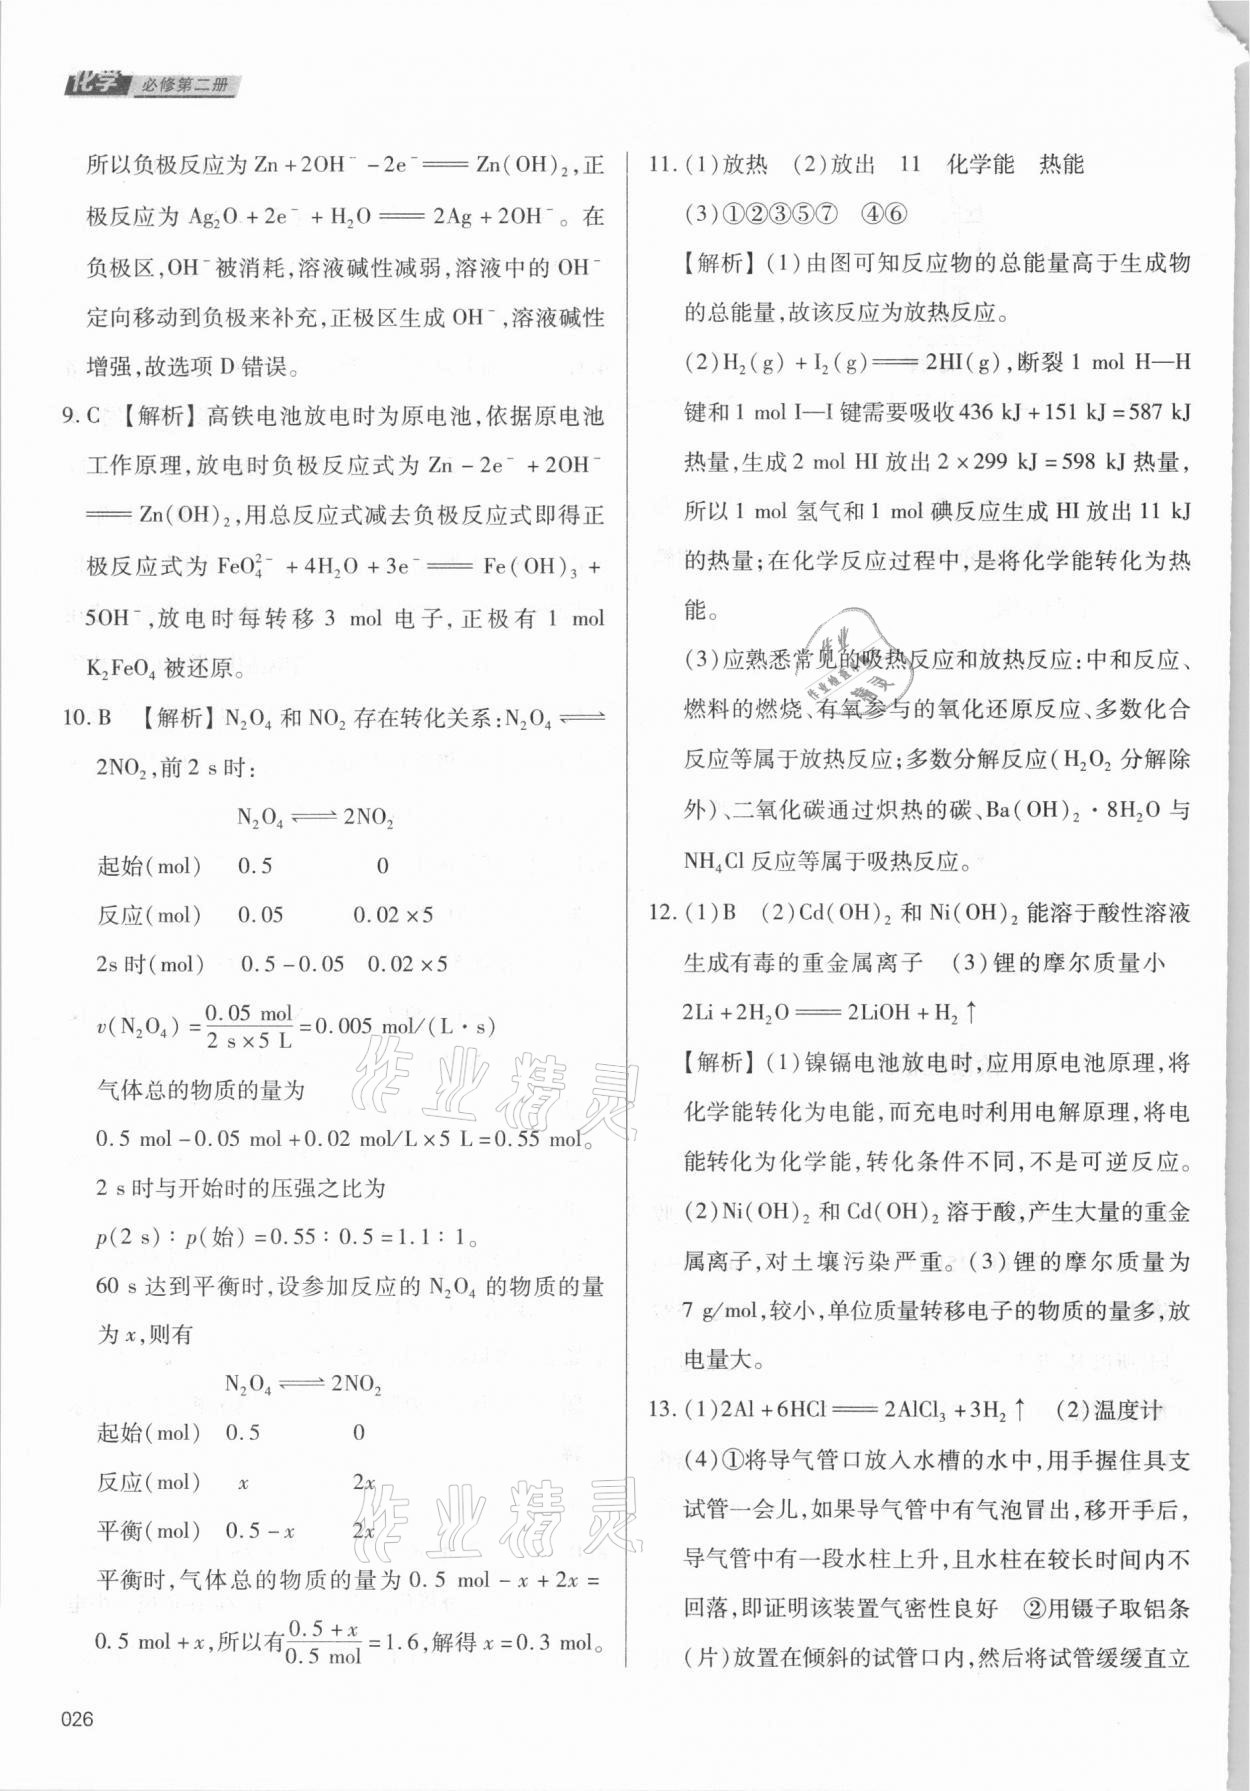 化学 必修第二册
所以负极反应为 Zn+2OH⁻-2e⁻══Zn(OH)₂,正
极反应为 Ag₂O+2e⁻+H₂O══2Ag+2OH⁻。在
负极区,OH⁻被消耗,溶液碱性减弱,溶液中的 OH⁻
定向移动到负极来补充,正极区生成 OH⁻,溶液碱性
增强,故选项 D 错误。
9. C 【解析】高铁电池放电时为原电池,依据原电池
工作原理,放电时负极反应式为 Zn-2e⁻+2OH⁻
══Zn(OH)₂,用总反应式减去负极反应式即得正
极反应式为 FeO₄²⁻+4H₂O+3e⁻══Fe(OH)₃+
5OH⁻,放电时每转移 3 mol 电子,正极有 1 mol
K₂FeO₄ 被还原。
10. B 【解析】N₂O₄ 和 NO₂ 存在转化关系:N₂O₄⇌
2NO₂,前 2 s 时:
N₂O₄⇌2NO₂
起始(mol) 0.5 0
反应(mol) 0.05 0.02×5
2s 时(mol) 0.5-0.05 0.02×5
v(N₂O₄)=0.05 mol/2 s×5 L=0.005 mol/(L·s)
气体总的物质的量为
0.5 mol-0.05 mol+0.02 mol/L×5 L=0.55 mol。
2 s 时与开始时的压强之比为
p(2 s)∶p(始)=0.55∶0.5=1.1∶1。
60 s 达到平衡时,设参加反应的 N₂O₄ 的物质的量
为 x,则有
N₂O₄⇌2NO₂
起始(mol) 0.5 0
反应(mol) x 2x
平衡(mol) 0.5-x 2x
平衡时,气体总的物质的量为 0.5 mol-x+2x=
0.5 mol+x,所以有0.5+x/0.5 mol=1.6,解得 x=0.3 mol。
026
11. (1)放热 (2)放出 11 化学能 热能
(3)①②③⑤⑦ ④⑥
【解析】(1)由图可知反应物的总能量高于生成物
的总能量,故该反应为放热反应。
(2)H₂(g)+I₂(g)══2HI(g),断裂 1 mol H—H
键和 1 mol I—I 键需要吸收 436 kJ+151 kJ=587 kJ
热量,生成 2 mol HI 放出 2×299 kJ=598 kJ 热量,
所以 1 mol 氢气和 1 mol 碘反应生成 HI 放出 11 kJ
的热量;在化学反应过程中,是将化学能转化为热
能。
(3)应熟悉常见的吸热反应和放热反应:中和反应、
燃料的燃烧、有氧参与的氧化还原反应、多数化合
反应等属于放热反应;多数分解反应(H₂O₂ 分解除
外)、二氧化碳通过炽热的碳、Ba(OH)₂·8H₂O 与
NH₄Cl 反应等属于吸热反应。
12. (1)B (2)Cd(OH)₂ 和 Ni(OH)₂ 能溶于酸性溶液
生成有毒的重金属离子 (3)锂的摩尔质量小
2Li+2H₂O══2LiOH+H₂↑
【解析】(1)镍镉电池放电时,应用原电池原理,将
化学能转化为电能,而充电时利用电解原理,将电
能转化为化学能,转化条件不同,不是可逆反应。
(2)Ni(OH)₂ 和 Cd(OH)₂ 溶于酸,产生大量的重金
属离子,对土壤污染严重。(3)锂的摩尔质量为
7 g/mol,较小,单位质量转移电子的物质的量多,放
电量大。
13. (1)2Al+6HCl══2AlCl₃+3H₂↑ (2)温度计
(4)①将导气管口放入水槽的水中,用手握住具支
试管一会儿,如果导气管中有气泡冒出,移开手后,
导气管中有一段水柱上升,且水柱在较长时间内不
回落,即证明该装置气密性良好 ②用镊子取铝条
(片)放置在倾斜的试管口内,然后将试管缓缓直立
作业精灵
作业精灵
作业
作业检查
精灵